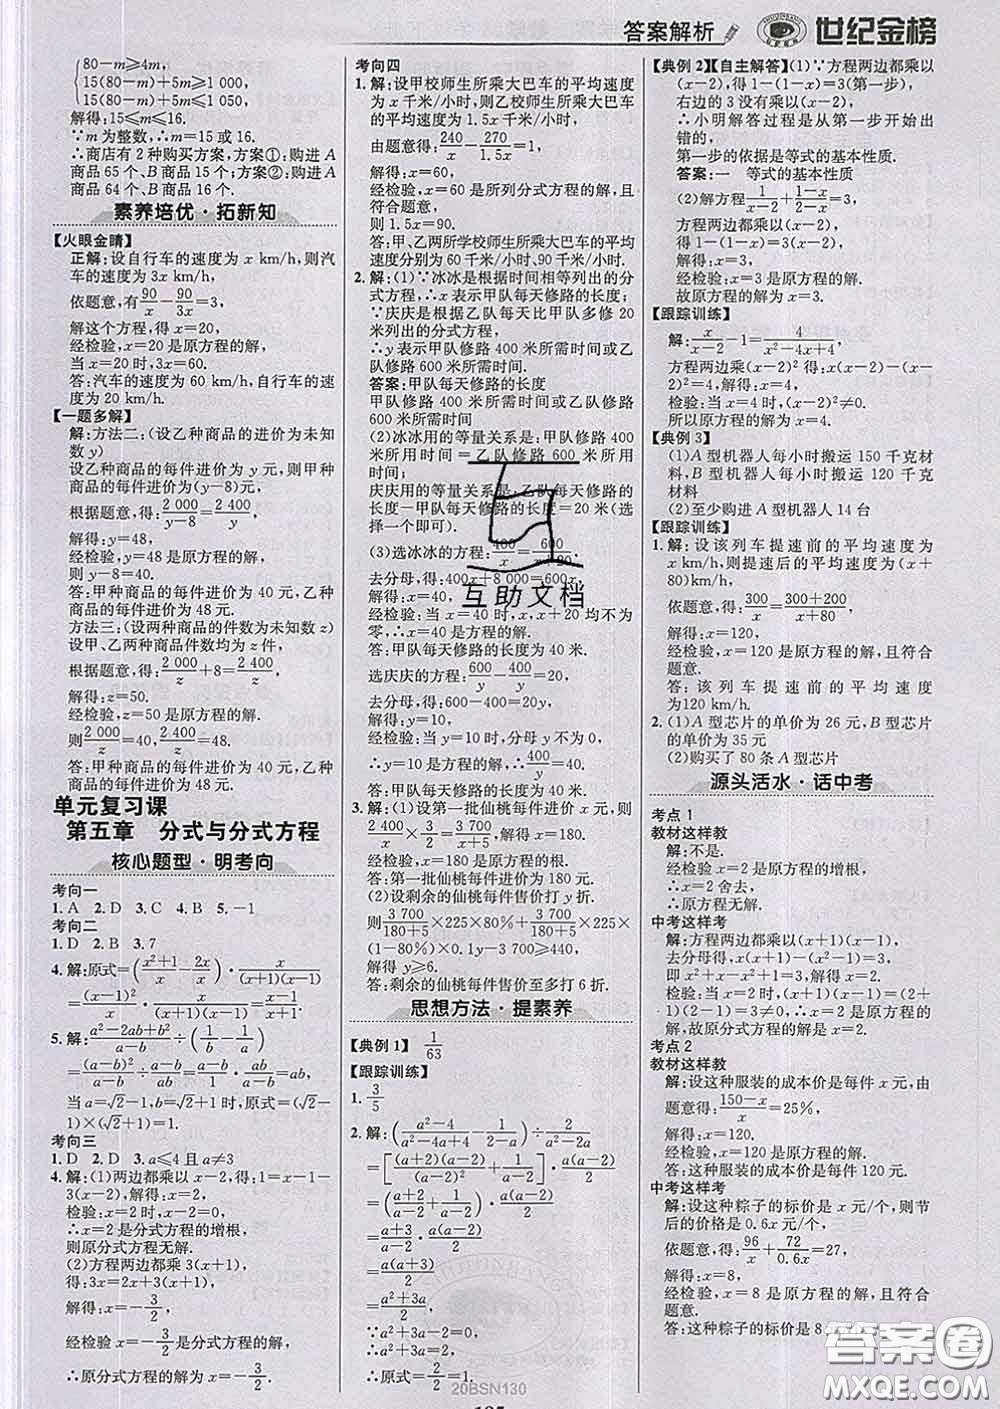 答案解析 世纪金榜
80－m≥4m,
15(80－m)＋5m≥1 000,
15(80－m)＋5m≤1 050,
解得:15≤m≤16.
∵m为整数,∴m=15或16.
∴商店有2种购买方案,方案①:购进A
商品65个、B商品15个;方案②:购进A
商品64个、B商品16个.
素养培优·拓新知
【火眼金睛】
正解:设自行车的速度为x km/h,则汽
车的速度为3x km/h,
依题意,有90/x－90/3x=3,
解这个方程,得x=20,
经检验,x=20是原方程的解.
当x=20时,3x=60.
答:汽车的速度为60 km/h,自行车的速
度为20 km/h.
【一题多解】
解:方法二:(设乙种商品的进价为未知
数y)
设乙种商品的每件进价为y元,则甲种
商品的每件进价为(y－8)元,
根据题意,得:2 000/(y－8)=2 400/y,
解得:y=48,
经检验,y=48是原方程的解,
则y－8=40.
答:甲种商品的每件进价为40元,乙种
商品的每件进价为48元.
方法三:(设两种商品的件数为未知数z)
设甲、乙两种商品均购进z件,
根据题意,得:2 000/z＋8=2 400/z,
解得:z=50.
经检验,z=50是原方程的解.
则2 000/z=40,2 400/z=48.
答:甲种商品的每件进价为40元,乙种
商品的每件进价为48元.
单元复习课
第五章 分式与分式方程
核心题型·明考向
考向一
1.A 2.D 3.C 4.B 5.－1
考向二
1.D 2.B 3.7
4.解:原式=((x²＋1)/x－2x/x)·x/((x＋1)(x－1))
=(x－1)²/x·x/((x＋1)(x－1))=(x－1)/(x＋1).
5.解:(a²－2ab＋b²)/(a－b)÷(1/b－1/a)
=(a－b)²/(a－b)÷(a－b)/ab=(a－b)²/(a－b)·ab/(a－b)=ab,
当a=√2－1,b=√2＋1时,原式=(√2－
1)×(√2＋1)=1.
考向三
1.D 2.D 3.a≤4且a≠3
4.解:(1)两边都乘x－2,得:x－1＋2(x－
2)=－3,解得:x=－2,
检验:当x=2时,x－2=0,
∴x=2是分式方程的增根,
则原分式方程无解.
(2)方程两边都乘3(x＋1),
得:3x=2x＋3x＋3,
解得:x=－3/2,
经检验x=－3/2是分式方程的解,
∴原分式方程的解为x=－3/2.
考向四
1.解:设甲校师生所乘大巴车的平均速度
为x千米/小时,则乙校师生所乘大巴车
的平均速度为1.5x千米/小时,
由题意得:240/x－270/1.5x=1,
解得:x=60,
经检验,x=60是所列分式方程的解,且
符合题意,
则1.5x=90.
答:甲、乙两所学校师生所乘大巴车的平均
速度分别为60千米/小时、90千米/小时.
2.解:(1)∵冰冰是根据时间相等列出的分
式方程,∴x表示甲队每天修路的长度;
∵庆庆是根据乙队每天比甲队多修20
米列出的分式方程,
∴y表示甲队修路400米所需时间或乙
队修路600米所需时间.
答案:甲队每天修路的长度
甲队修路400米所需时间或乙队修路
600米所需时间
(2)冰冰用的等量关系是:甲队修路400
米所用时间=乙队修路600米所用
时间;
庆庆用的等量关系是:乙队每天修路的
长度－甲队每天修路的长度=20米(选
择一个即可).
(3)选冰冰的方程:400/x=600/(x＋20),
去分母,得:400x＋8 000=600x,
解得:x=40,
经检验:当x=40时,x,x＋20均不为
零,∴x=40是方程的解.
答:甲队每天修路的长度为40米.
选庆庆的方程:600/y－400/y=20,
去分母,得:600－400=20y,
解得:y=10,
经检验:当y=10时,分母y不为0,
∴y=10是方程的解,∴400/y=40.
答:甲队每天修路的长度为40米.
3.解:(1)设第一批仙桃每件进价x元,则
2 400/x×3/2=3 700/(x＋5),解得x=180.
经检验,x=180是原方程的根.
答:第一批仙桃每件进价为180元.
(2)设剩余的仙桃每件售价打y折.
则3 700/(180＋5)×225×80%＋3 700/(180＋5)×225×
(1－80%)×0.1y－3 700≥440,
解得y≥6.
答:剩余的仙桃每件售价至少打6折.
思想方法·提素养
【典例1】 1/63
【跟踪训练】
1.3/5
2.解:((a²－4)/(a²－4a＋4)－1/(2－a))÷2/(a²－2a)
=[(a＋2)(a－2)/(a－2)²＋1/(a－2)]·a(a－2)/2
=((a＋2)/(a－2)＋1/(a－2))·a(a－2)/2
=(a＋3)/(a－2)·a(a－2)/2
=a(a＋3)/2
=(a²＋3a)/2,
∵a²＋3a－2=0,
∴a²＋3a=2,
∴原式=2/2=1.
【典例2】【自主解答】(1)∵方程两边都乘以
(x－2),得:1－x=－1－3(第一步),
右边的3没有乘以(x－2),
∴小明解答过程是从第一步开始出
错的,
第一步的依据是等式的基本性质.
答案:一 等式的基本性质
(2)解方程1/(x－2)=(1－x)/(2－x)－3,
方程两边都乘以(x－2),
解得:x=3,
经检验:x=3是原方程的解.
故原方程的解为x=3.
【跟踪训练】
解:x/(x－2)－1=4/(x²－4x＋4),
方程两边乘(x－2)²得:x(x－2)－(x－
2)²=4,解得:x=4,
检验:当x=4时,(x－2)²≠0.
所以原方程的解为x=4.
【典例3】
(1)A型机器人每小时搬运150千克材
料,B型机器人每小时搬运120千克
材料
(2)至少购进A型机器人14台
【跟踪训练】
1.解:设该列车提速前的平均速度为
x km/h,则提速后的平均速度为(x＋
80)km/h,
依题意,得:300/x=(300＋200)/(x＋80),
解得:x=120,
经检验,x=120是原方程的解,且符合
题意.
答:该列车提速前的平均速度
为120 km/h.
2.(1)A型芯片的单价为26元,B型芯片
的单价为35元
(2)购买了80条A型芯片
源头活水·话中考
考点1
教材这样教
解:不是.
经检验x=2是原方程的增根,
∴x=2舍去,
∴原方程无解.
中考这样考
解:方程两边都乘以(x＋1)(x－1),
去分母得:x(x＋1)－(x²－1)=3,
即x²＋x－x²＋1=3,解得:x=2,
检验:当x=2时,(x＋1)(x－1)=(2＋
1)(2－1)=3≠0,∴x=2是原方程的
解,故原分式方程的解是x=2.
考点2
教材这样教
解:设这种服装的成本价是每件x元,由
题意得:(150－x)/x=25%,
解得:x=120.
经检验:x=120是原方程的解.
答:这种服装的成本价是每件120元.
中考这样考
解:设这种粽子的标价是x元/个,则节
后的价格是0.6x元/个,
依题意,得:96/x＋72/0.6x=27,
解得:x=8,
经检验,x=8是原方程的解,且符合
题意.
答:这种粽子的标价是8
互助文档
20BSN130
答案圈
MXQE.COM